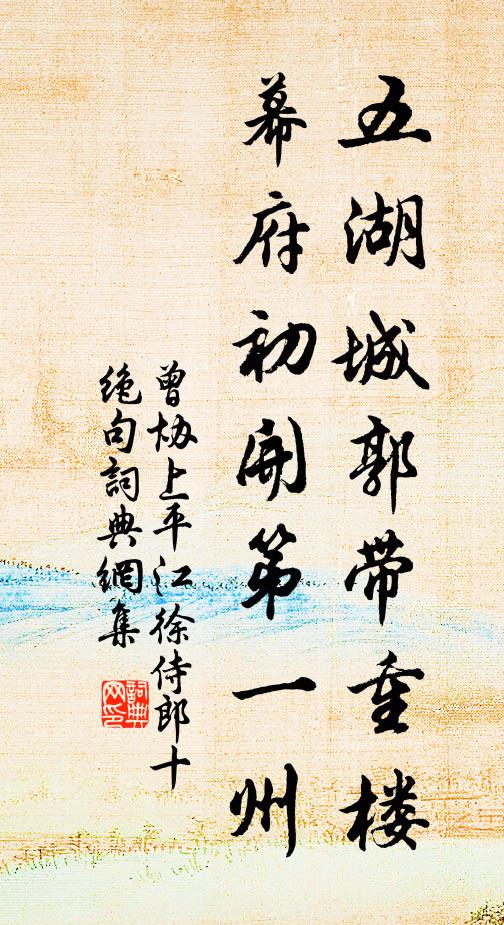 五湖城郭带重楼
幕府初開第一州
曾协上平江徐侍郎十
绝句詞典網集
詞典
网印